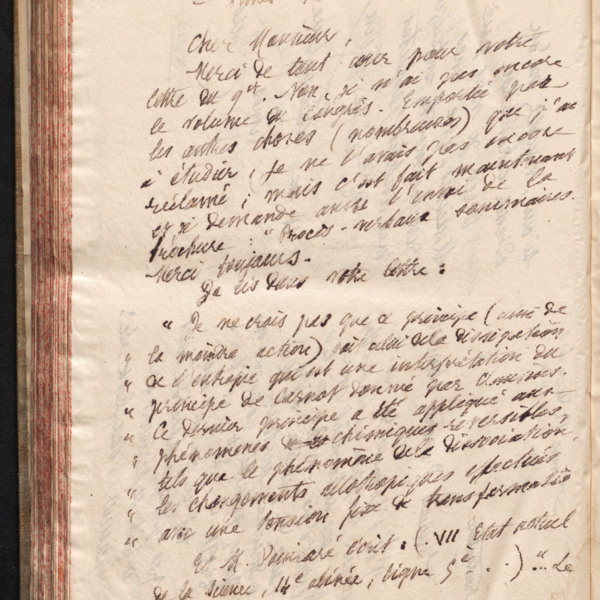 Cher Monsieur,
Merci de tout cœur pour votre
lettre du 9 ct. Non, je n'ai pas encore
le volume du Congrès. Emporté par
les autres choses (nombreuses) que j'ai
à étudier, je ne l'avais pas encore
réclamé ; mais c'est fait maintenant
et je demande aussi l'envoi de la
brochure : "Procès-verbaux sommaires.
Merci toujours.
Je lis dans votre lettre :
" Je ne crois pas que ce principe (celui de
" la moindre action) soit celui de la dissipation
" de l'entropie qui est une interprétation du
" principe de Carnot donnée par Clausius.
" Ce dernier principe a été appliqué aux
" phénomènes chimiques reversibles,
" tels que le phénomène de la dissociation,
" les changements allotropiques effectués
" avec une tension fixe de transformation
Et M. Poincaré écrit : (VII Etat actuel
de la Science, 14e alinéa, ligne 5e ..) "... Le